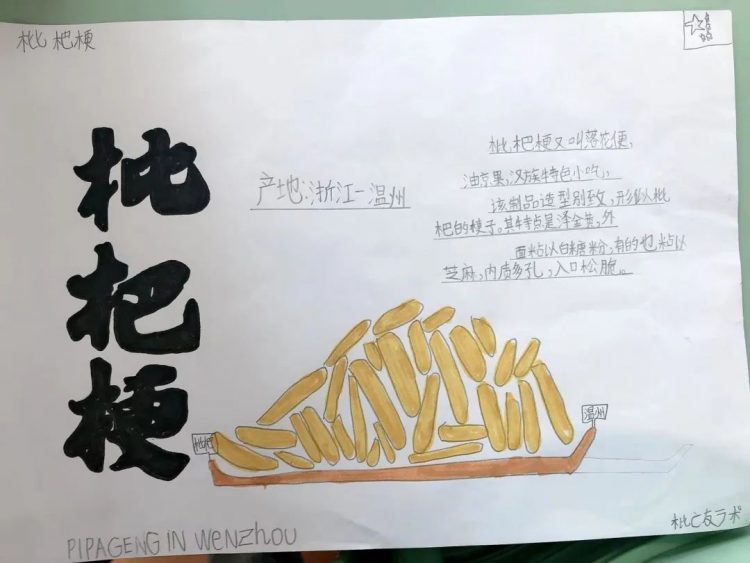 枇杷梗
枇杷梗
产地:浙江-温州
枇杷梗又叫落花便,
油京果,汉族特色小吃,
该制品造型别致,形似枇
杷的梗子。其特点是泽金黄,外
面粘以白糖粉,有的也粘以
芝麻,内质多孔,入口松脆。
枇杷
温州
PIPAGENG IN WENZHOU